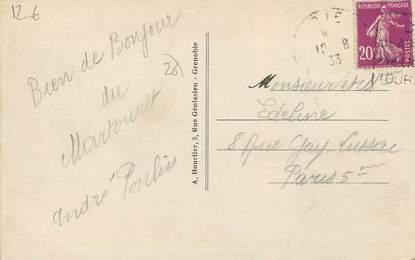 12 €
Bien de Bonjour
du
Martouret
André Poulin
A. Hourlier, 5, Rue Génissieu - Grenoble
DIE
10 - 8
33
REPUBLIQUE FRANÇAISE
20c
POSTES
Monsieur et
Edeline
8 Rue Gay Lussac
Paris 5ème